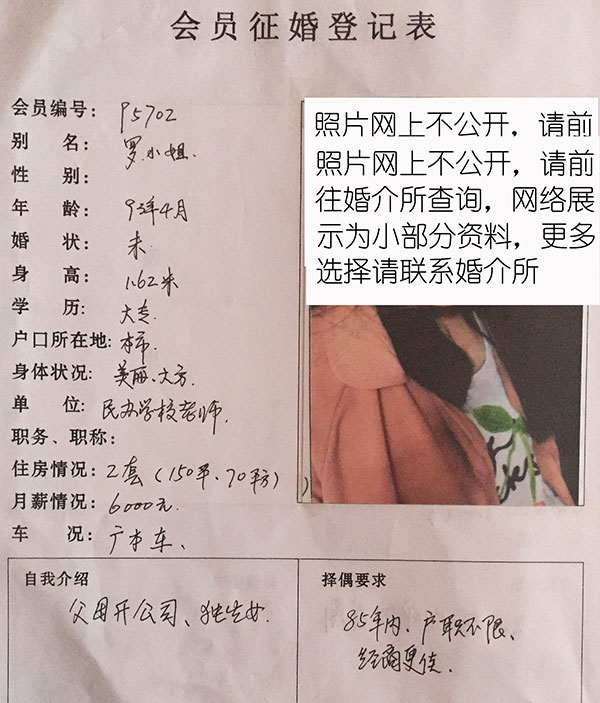 会员征婚登记表
会员编号: P5702
别 名: 罗小姐.
性 别:
年 龄: 93年4月
婚 状: 未.
身 高: 1.62米
学 历: 大专.
户口所在地: 本市.
身体状况: 美丽、大方.
单 位: 民办学校老师.
职务、职称:
住房情况: 2套(150平、70平方)
月薪情况: 6000元.
车 况: 广本车、
照片网上不公开，请前
照片网上不公开，请前
往婚介所查询，网络展
示为小部分资料，更多
选择请联系婚介所
自我介绍
父母开公司、独生女.
择偶要求
85年内、户职不限、
经商更佳.